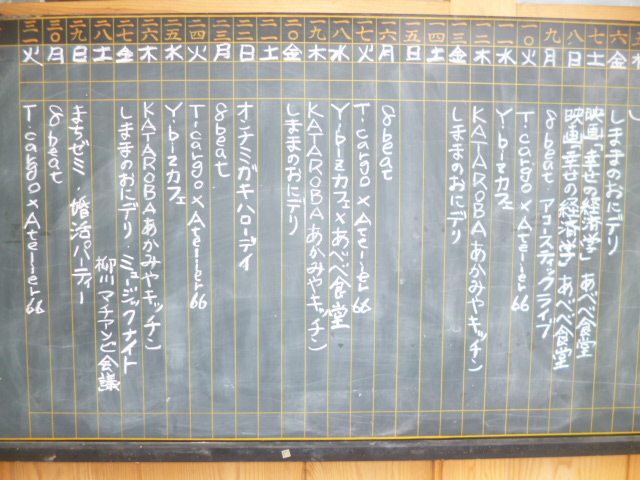 五 水 し
六 金 しままのおにデリ
七 土 映画「幸せの経済学」あべべ食堂
八 日 映画「幸せの経済学」あべべ食堂
九 月 8beat・アコースティックライブ
一〇 火 T-cargo×Atelier66
一一 水 Y-bizカフェ
一二 木 KATAROBAあかみやキッチン
一三 金 しままのおにデリ
一四 土
一五 日
一六 月 8beat
一七 火 T-cargo×Atelier66
一八 水 Y-bizカフェ×あべべ食堂
一九 木 KATAROBAあかみやキッチン
二〇 金 しままのおにデリ
二一 土
二二 日 オンチミガキハローデイ
二三 月 8beat
二四 火 T-cargo×Atelier66
二五 水 Y-bizカフェ
二六 木 KATAROBAあかみやキッチン
二七 金 しままのおにデリ・ミュージックナイト
二八 土 柳川マチアンビ会議
二九 日 まちゼミ・婚活パーティー
三〇 月 8beat
三一 火 T-cargo×Atelier66